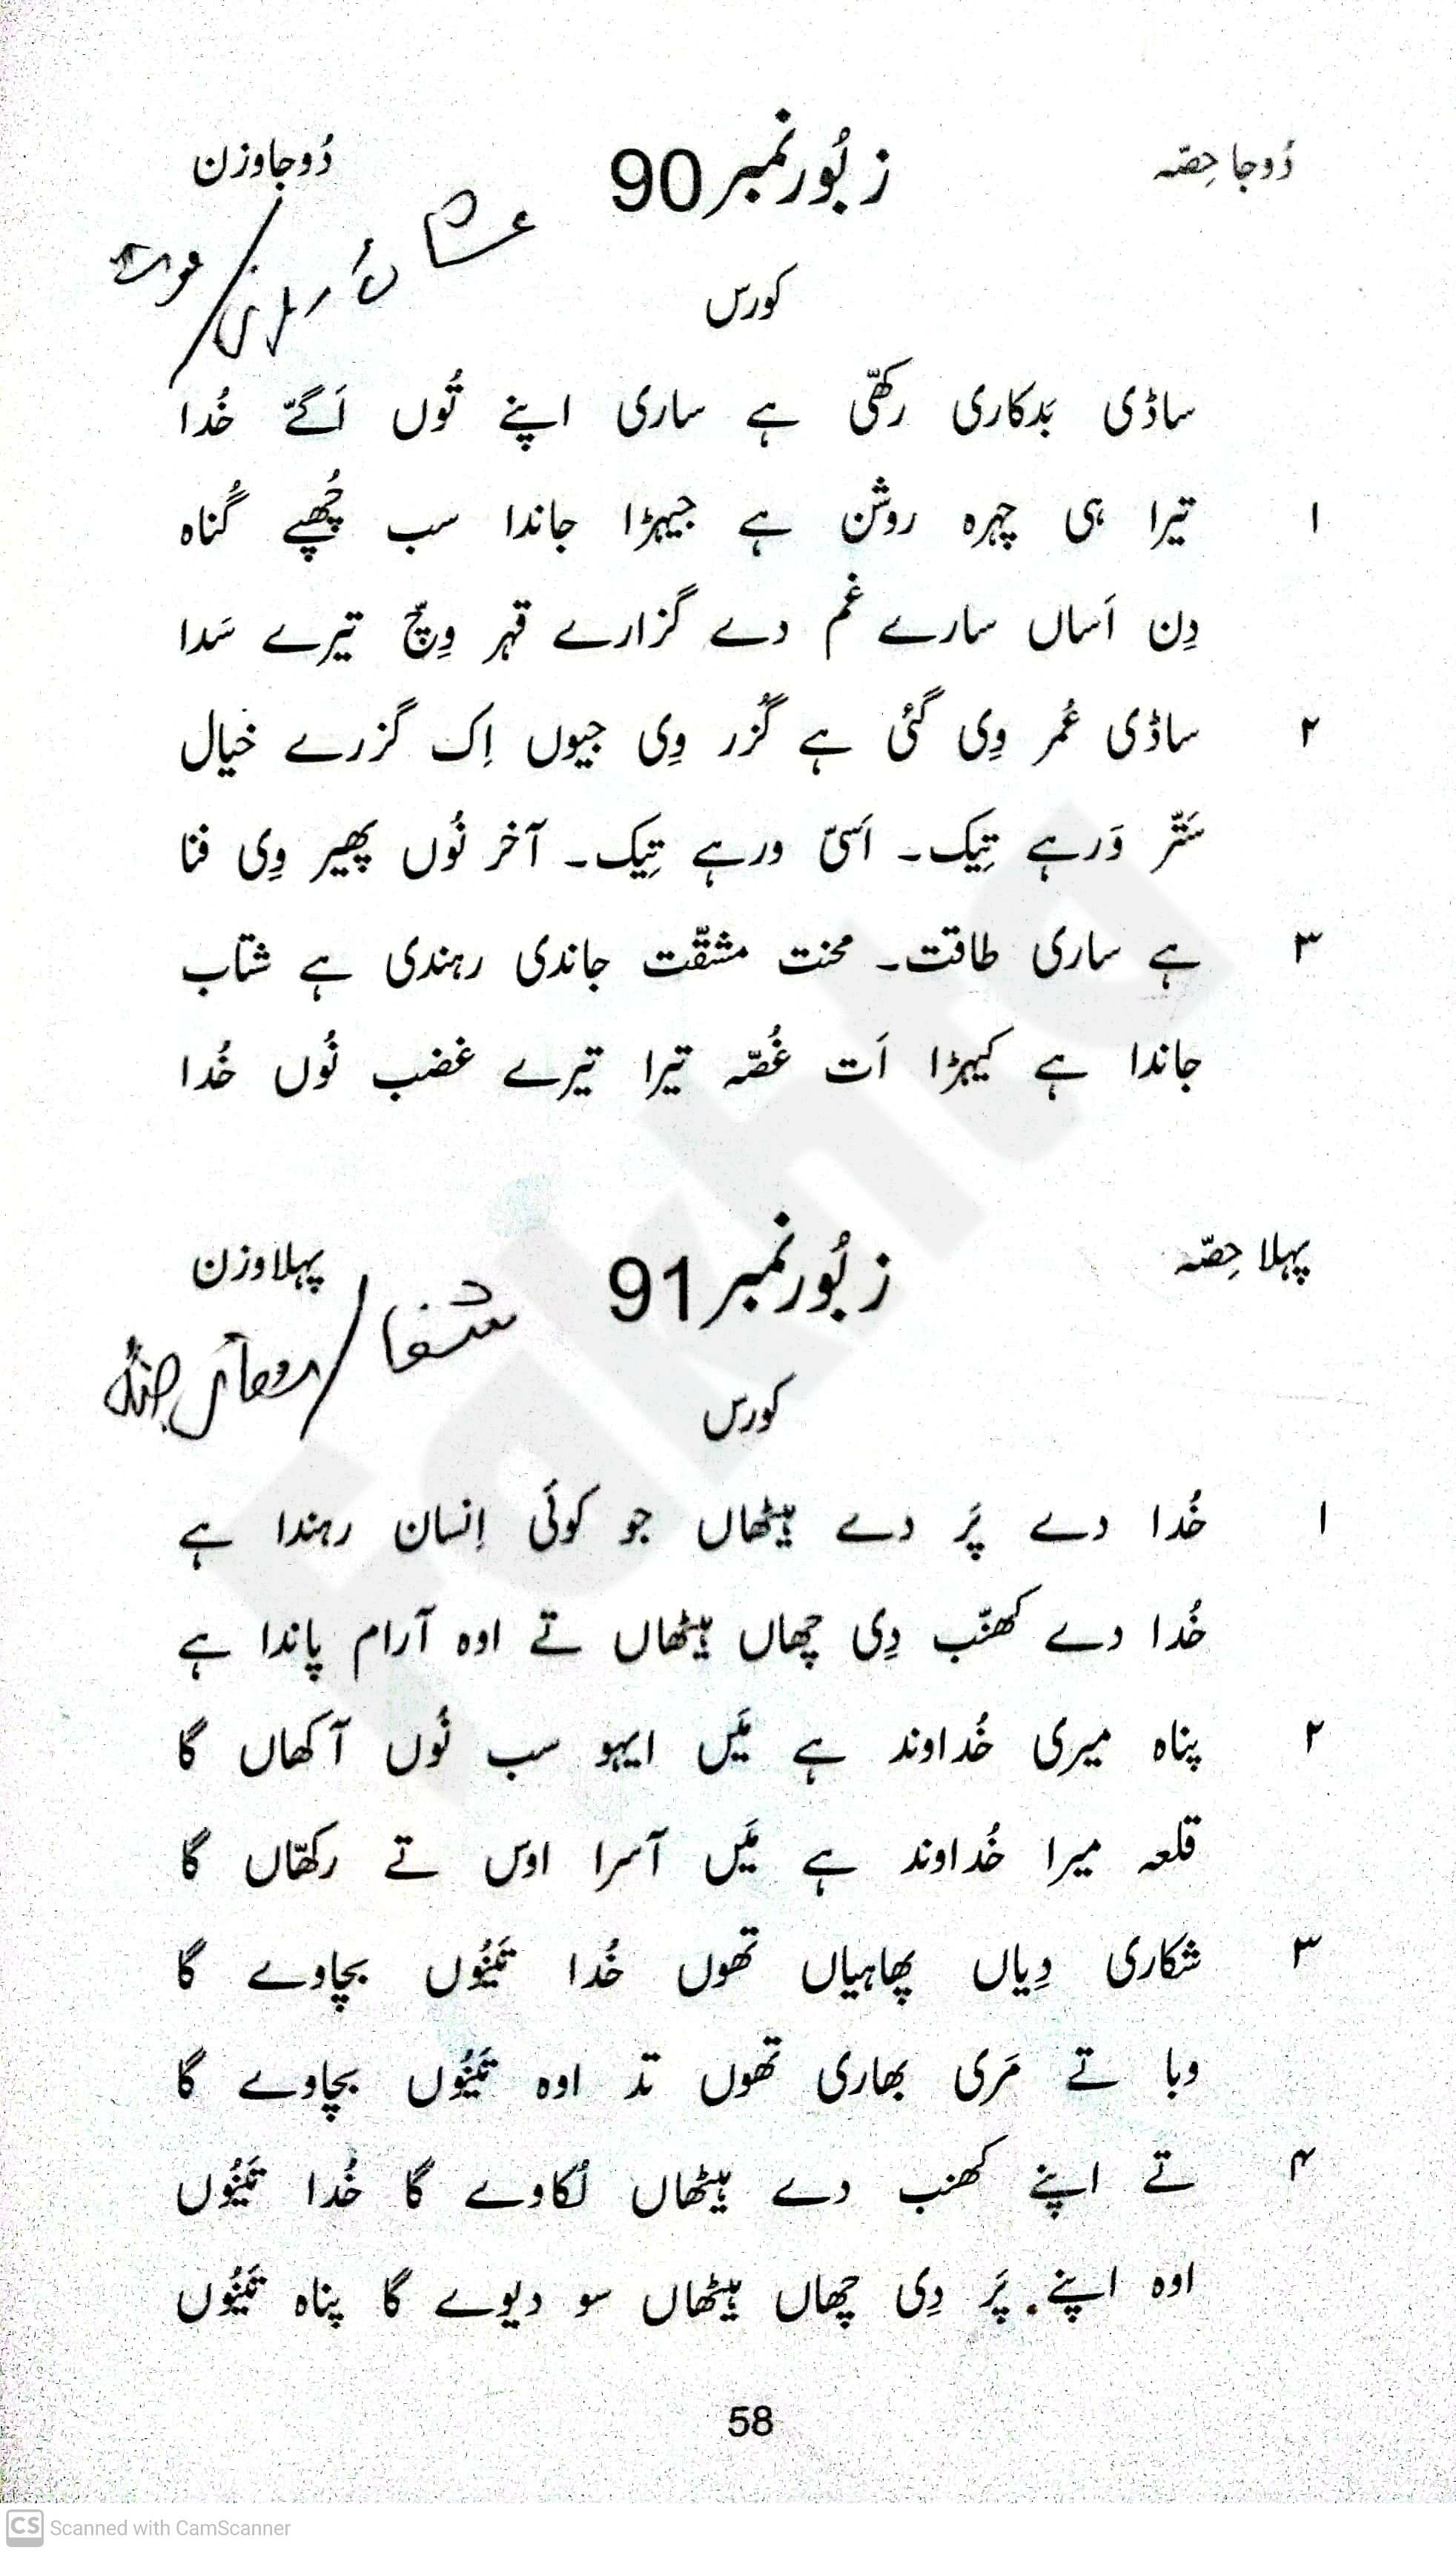 دُوجا حِصّہ
زبُور نمبر 90
دُوجا وزن
کورس
ساڈی بَدکاری رکھّی ہے ساری اپنے تُوں اَگّے خُدا
۱ تیرا ہی چہرہ روشن ہے جیہڑا جاندا سب چُھپے گُناہ
دِن اَساں سارے غم دے گزارے قہر وِچّ تیرے سَدا
۲ ساڈی عُمر وِی گئی ہے گُزر وِی جیوں اِک گزرے خیال
سَتّر وَرہے تِیک۔ اَسیّ ورہے تِیک۔ آخر نُوں پھیر وِی فنا
۳ ہے ساری طاقت۔ محنت مشقّت جاندی رہندی ہے شتاب
جاندا ہے کیہڑا اَت غُصّہ تیرا تیرے غضب نُوں خُدا
پہلا حِصّہ
زبُور نمبر 91
پہلا وزن
شفا /
کورس
۱ خُدا دے پَر دے ہیٹھاں جو کوئی اِنسان رہندا ہے
خُدا دے کھنّب دِی چھاں ہیٹھاں تے اوہ آرام پاندا ہے
۲ پناہ میری خُداوند ہے مَیں ایہو سب نُوں آکھاں گا
قلعہ میرا خُداوند ہے مَیں آسرا اوس تے رکھّاں گا
۳ شکاری دِیاں پھاہیاں تھوں خُدا تَینُوں بچاوے گا
وبا تے مَری بھاری تھوں تد اوہ تَینُوں بچاوے گا
۴ تے اپنے کھنب دے ہیٹھاں لُکاوے گا خُدا تَینُوں
اوہ اپنے پَر دِی چھاں ہیٹھاں سو دیوے گا پناہ تَینُوں
58
CS Scanned with CamScanner